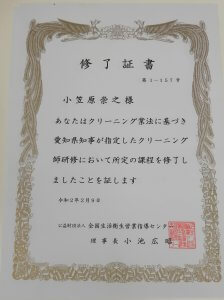 修了証書
第1-157号
小笠原崇之様
あなたはクリーニング業法に基づき
愛知県知事が指定したクリーニング
師研修において所定の課程を修了し
ましたことを証します
令和2年2月9日
公益財団法人 全国生活衛生営業指導センター
理事長 小池広昭